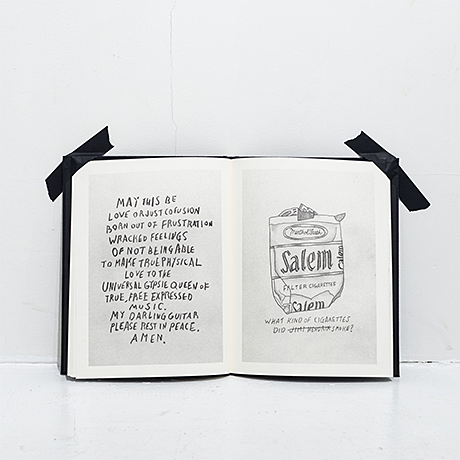 MAY THIS BE
LOVE OR JUST COFUSION
BORN OUT OF FRUSTRATION
WRACHED FEELINGS
OF NOT BEING ABLE
TO MAKE TRUE PHYSICAL
LOVE TO THE
UNIVERSAL GYPSIE QUEEN OF
TRUE, FREE EXPRESSED
MUSIC.
MY DARLING GUITAR
PLEASE REST IN PEACE.
AMEN.
Menthol Fresh
Salem
FILTER CIGARETTES
Salem
WHAT KIND OF CIGARETTES
DID JIMI HENDRIX SMOKE?